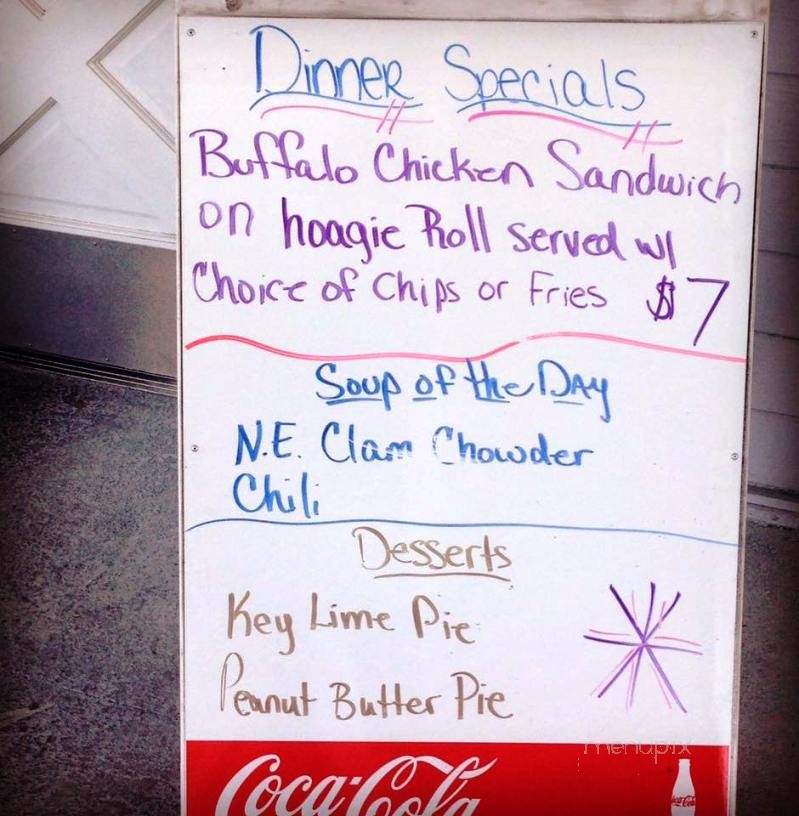 Dinner Specials
Buffalo Chicken Sandwich
on hoagie Roll served w/
Choice of Chips or Fries $7
Soup of the Day
N.E. Clam Chowder
Chili
Desserts
Key Lime Pie
Peanut Butter Pie
menupix
Coca-Cola